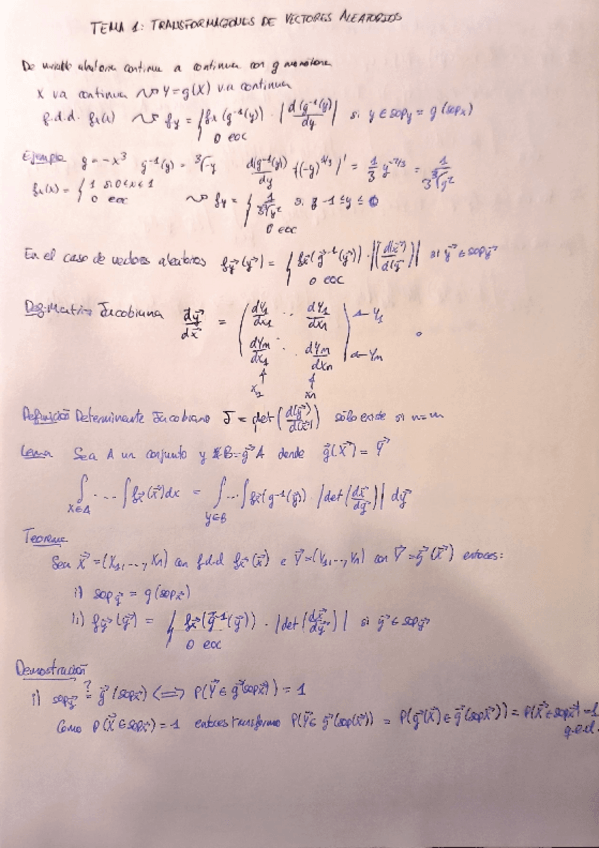 TEMA 1: TRANSFORMACIONES DE VECTORES ALEATORIOS
De variable aleatoria continua a continua con g monótona
X va continua ⇝ Y=g(X) v.a continua
f.d.d. fx(x) ⇝ fy = { fx(g⁻¹(y)) · |d(g⁻¹(y))/dy| si y ∈ sop_y = g(sop_x)
0 eoc
Ejemplo g = -x³ g⁻¹(y) = ³√-y d(g⁻¹(y))/dy = 1/3 y^-2/3 = 1/(3 ³√y²)
fx(x) = { 1 si 0<x<1 ⇝ fy = { 1/(3 ³√y²) si -1≤y≤0
0 eoc 0 eoc
En el caso de vectores aleatorios fy⃗(y⃗) = { fx⃗(g⃗⁻¹(y⃗)) · |(d(x⃗)/d(y⃗))| si y⃗ ∈ sop y⃗
0 eoc
Def: Matriz Jacobiana dy⃗/dx⃗ = ( dY1/dx1 ·· dY1/dxn ← Y1
dYm/dx1 ·· dYm/dxn ) ← Ym
↑ ↑
x1 xn
Definición Determinante Jacobiano J = det(d(y⃗)/d(x⃗)) sólo existe si n=m
Lema Sea A un conjunto y B=g⃗ A donde g⃗(X⃗) = Y⃗
∫ ... ∫ fx⃗(x⃗)dx = ∫ ... ∫ fx⃗(g⁻¹(y⃗)) · |det(dx⃗/dy⃗)| dy⃗
X∈A Y∈B
Teorema
Sea X⃗=(X1,..,Xn) con f.d.d fx⃗(x⃗) e Y⃗=(Y1,..,Yn) con Y⃗=g⃗(X⃗) entonces:
i) sop y⃗ = g(sop x)
ii) fy⃗(y⃗) = { fx⃗(g⃗⁻¹(y⃗)) · |det(dx⃗/dy⃗)| si y⃗ ∈ sop y⃗
0 eoc
Demostración
i) sop y⃗ =? g⃗(sop x⃗) ⟺ P(Y⃗∈g⃗(sop x⃗)) = 1
Como P(X⃗∈sop x⃗)=1 entonces transformo P(Y⃗∈g⃗(sop(x⃗)) = P(g⃗(X⃗)∈g⃗(sop X⃗)) = P(X⃗∈sop x⃗)=1
q.e.d.